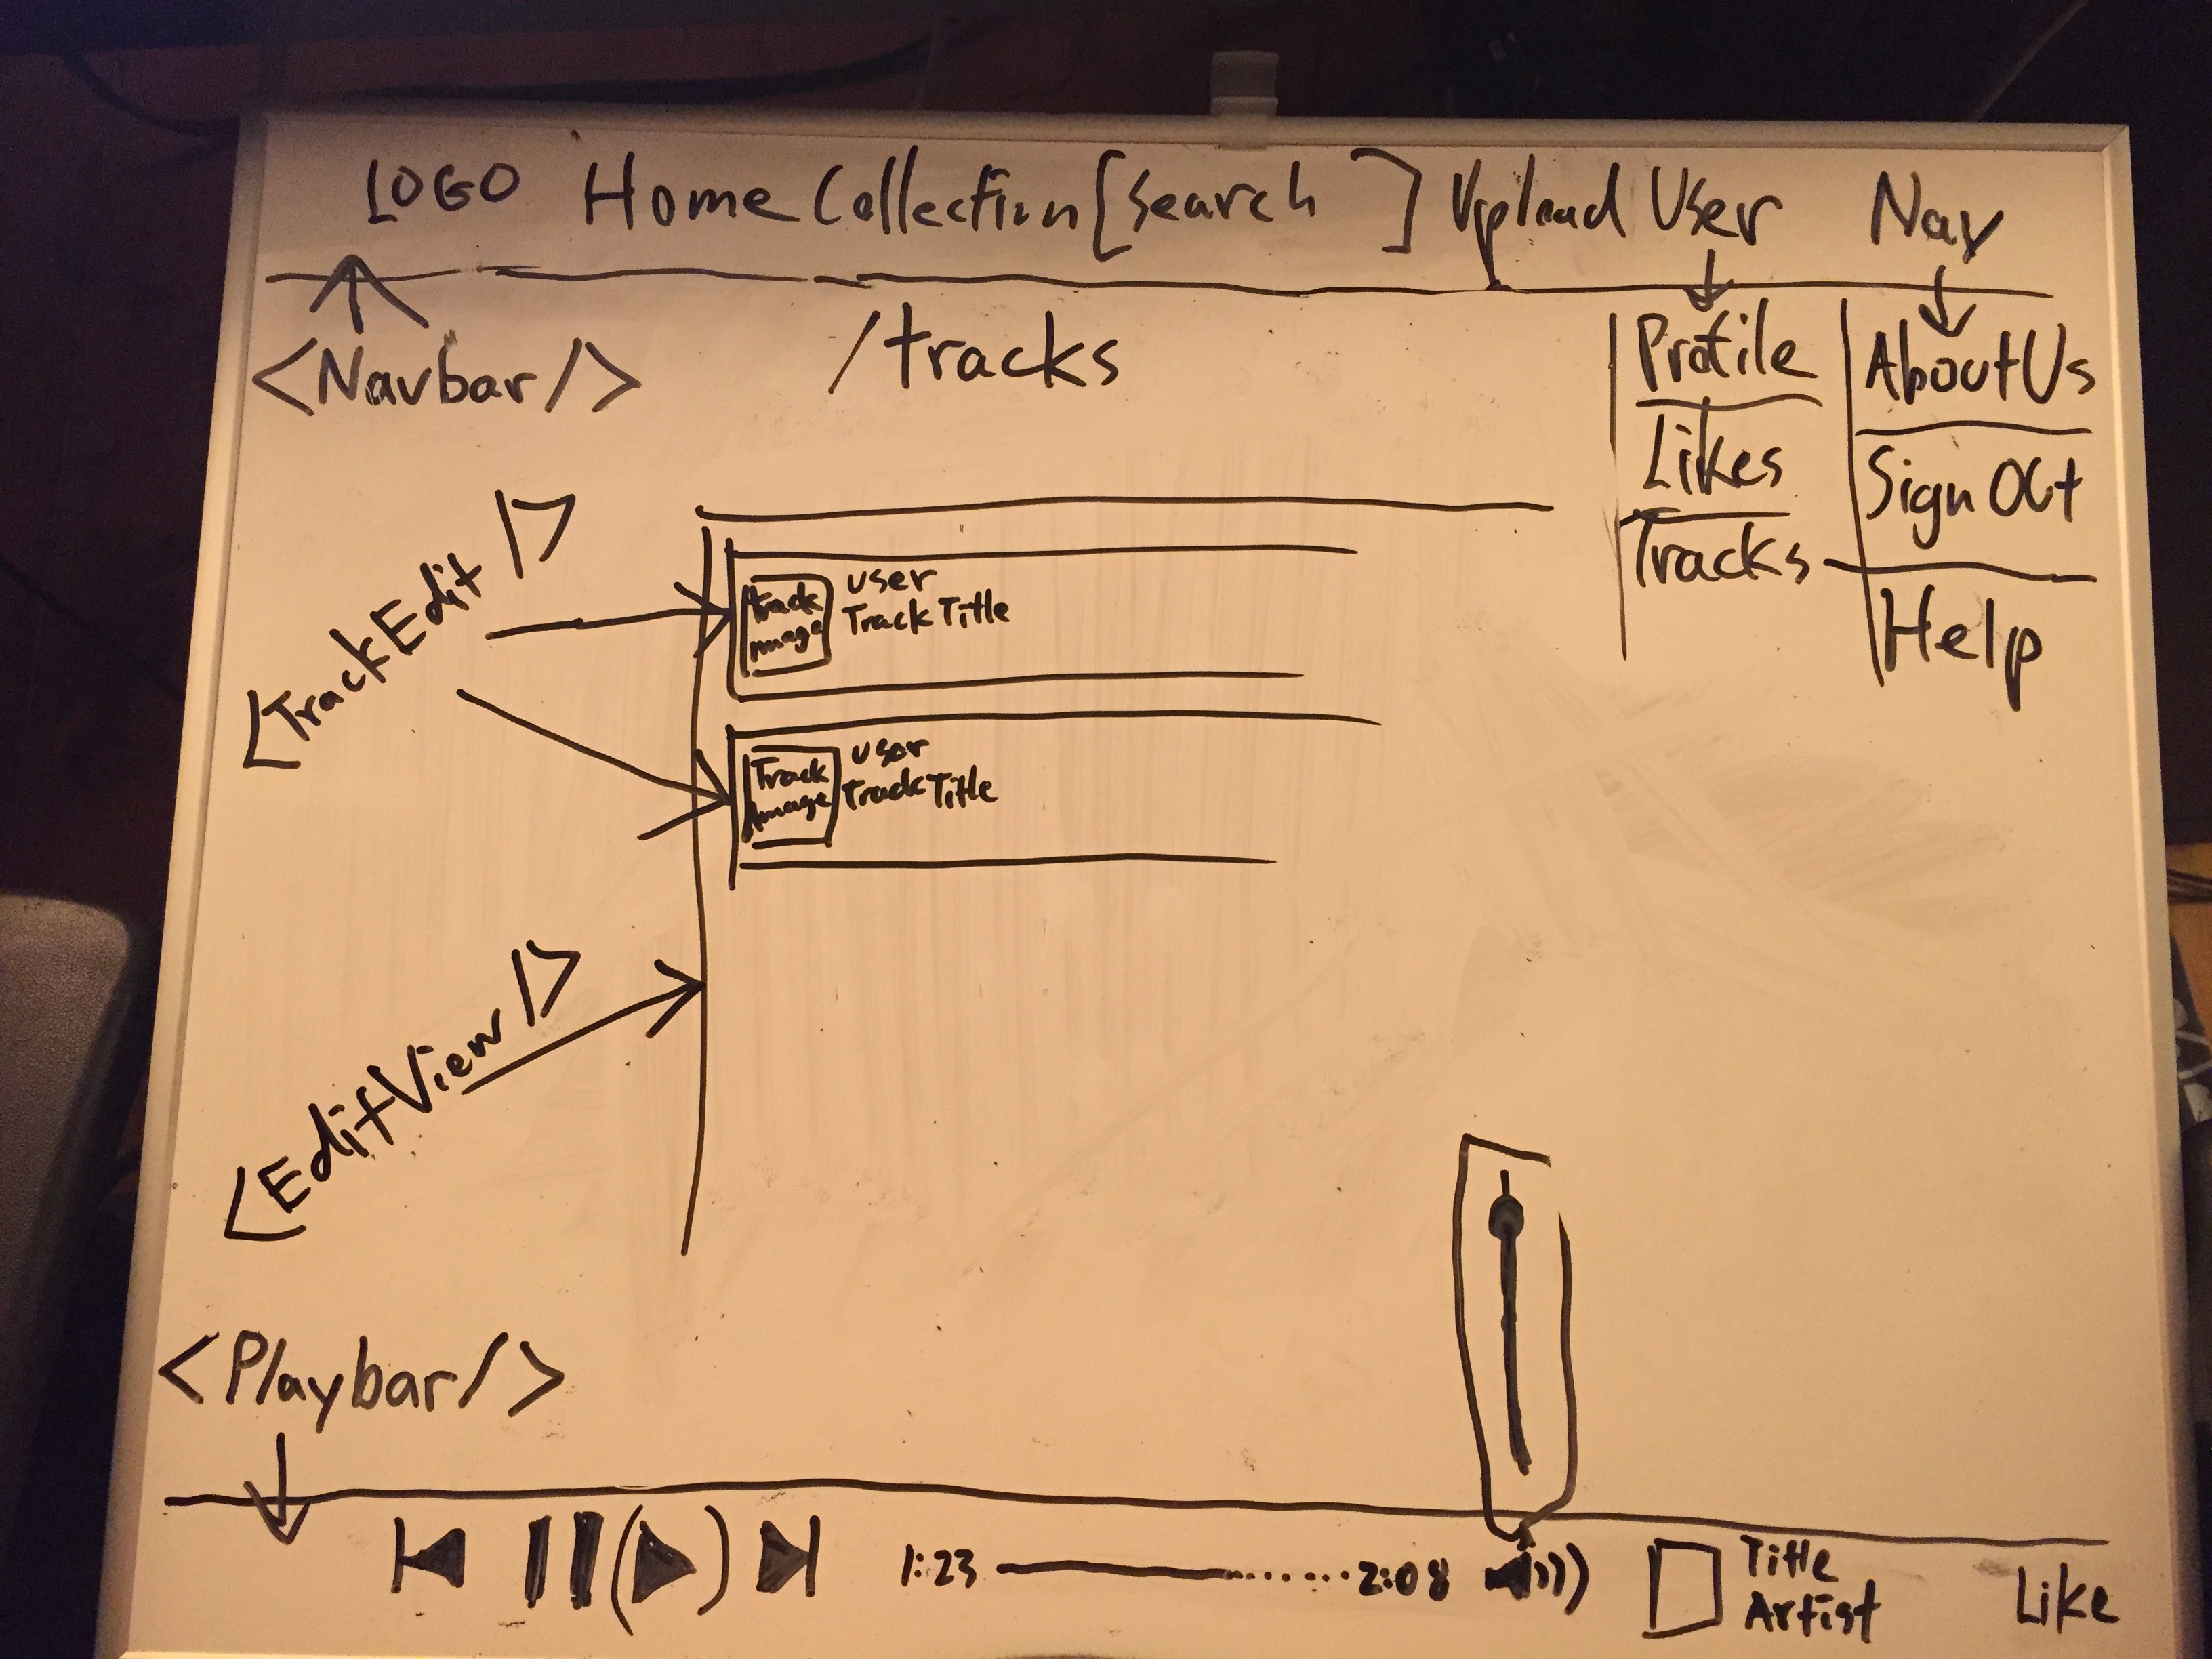 LOGO Home Collection [search ] Upload User Nav
<Navbar/>
/tracks
Profile
Likes
Tracks
About Us
Sign Out
Help
<TrackEdit/>
Track Image
User
Track Title
Track Image
User
Track Title
<EditView/>
<Playbar/>
1:23 2:08
Title
Artist
Like